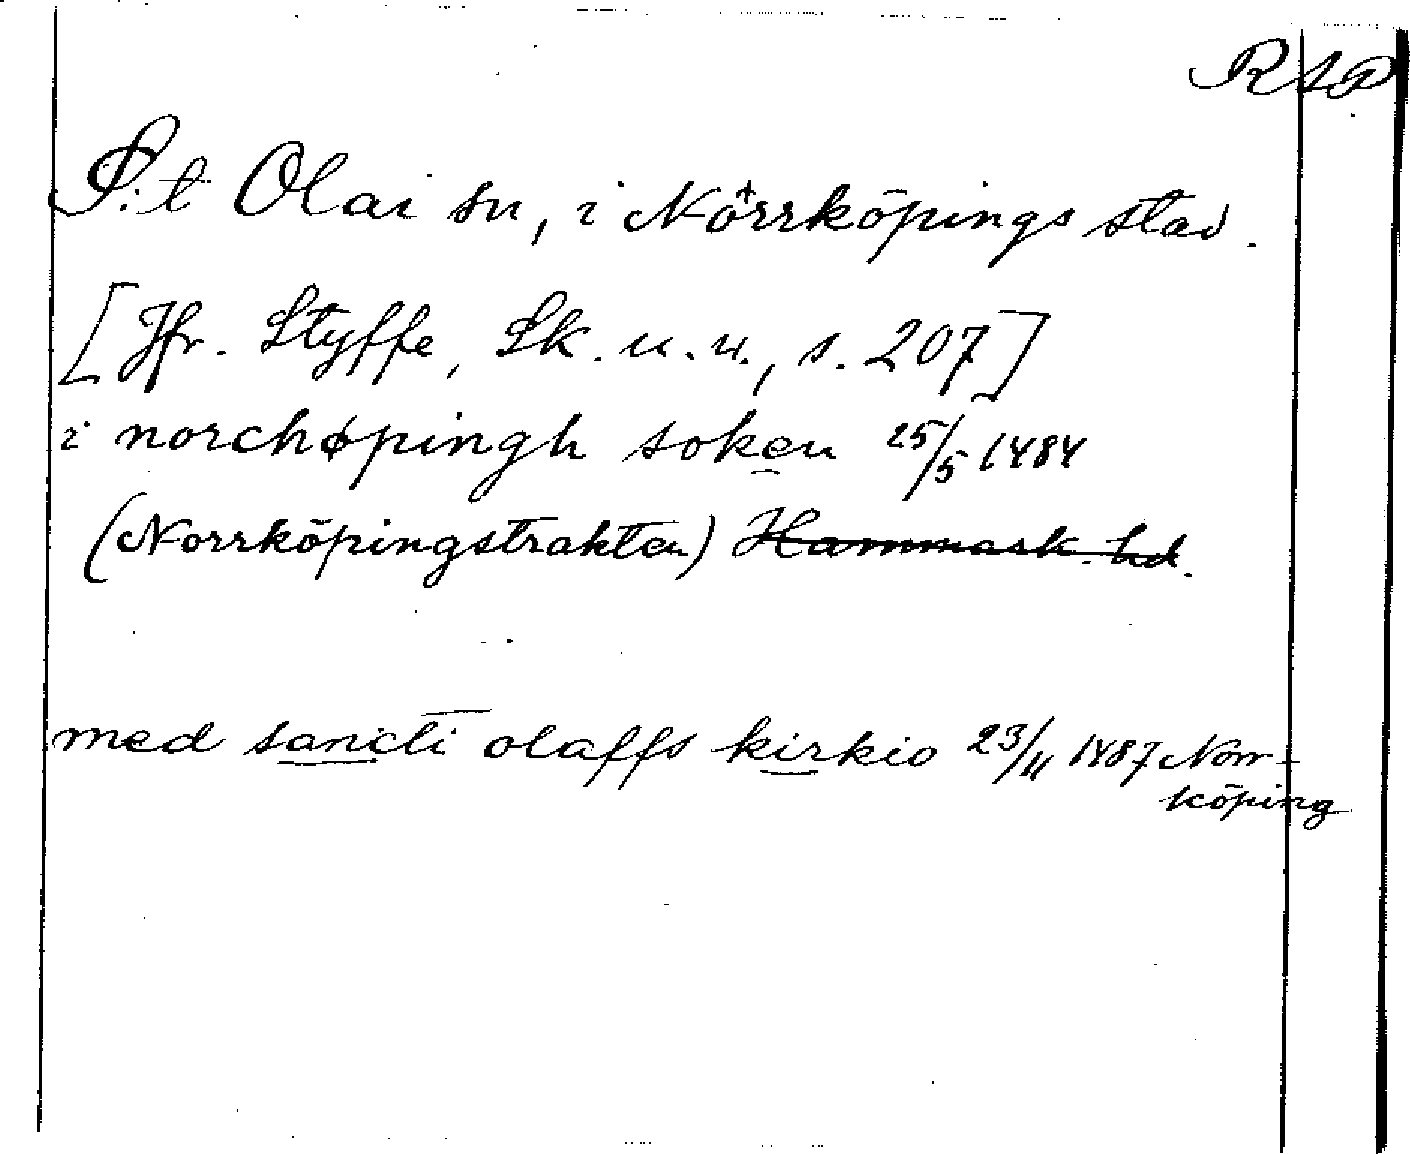 RAP
S:t Olai sn, i Norrköpings stad.
[Jfr. Styffe, Sk. u. u., s. 207]
i norchøpingh soken 25/5 1484
(Norrköpingstrakten) Hammark. hd.
med sancti olaffs kirkio 23/11 1487 Norr-
köping